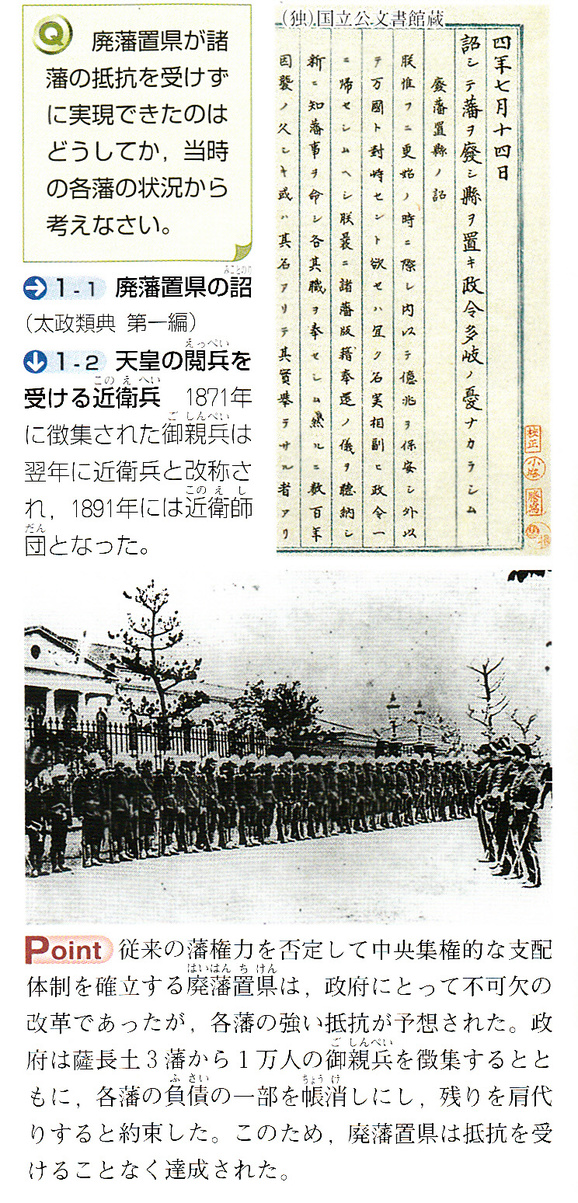 Q 廃藩置県が諸
藩の抵抗を受けず
に実現できたのは
どうしてか，当時
の各藩の状況から
考えなさい。
みことのり
1-1 廃藩置県の詔
（太政類典 第一編）
えっぺい
1-2 天皇の閲兵を
このえへい
受ける近衛兵 1871年
ごしんぺい
に徴集された御親兵は
翌年に近衛兵と改称さ
このえし
れ，1891年には近衛師
だん
団となった。
(独)国立公文書館蔵
四年七月十四日
詔シテ藩ヲ廢シ縣ヲ置キ政令多岐ノ憂ナカラシム
廢藩置縣ノ詔
朕惟フニ更始ノ時ニ際シ内以テ億兆ヲ保安シ外以
テ万國ト對峙セント欲セハ宜ク名実相副ヒ政令一
ニ歸セシムヘシ朕曩ニ諸藩版籍奉還ノ儀ヲ聴納シ
新ニ知藩事ヲ命シ各其職ヲ奉セシム然ルニ数百年
因襲ノ久シキ或ハ其名アリテ其實挙ラサル者アリ
校正
Point 従来の藩権力を否定して中央集権的な支配
はいはんちけん
体制を確立する廃藩置県は，政府にとって不可欠の
改革であったが，各藩の強い抵抗が予想された。政
ごしんぺい
府は薩長土３藩から１万人の御親兵を徴集するとと
ふさい ちょうけ
もに，各藩の負債の一部を帳消しにし，残りを肩代
りすると約束した。このため，廃藩置県は抵抗を受
けることなく達成された。